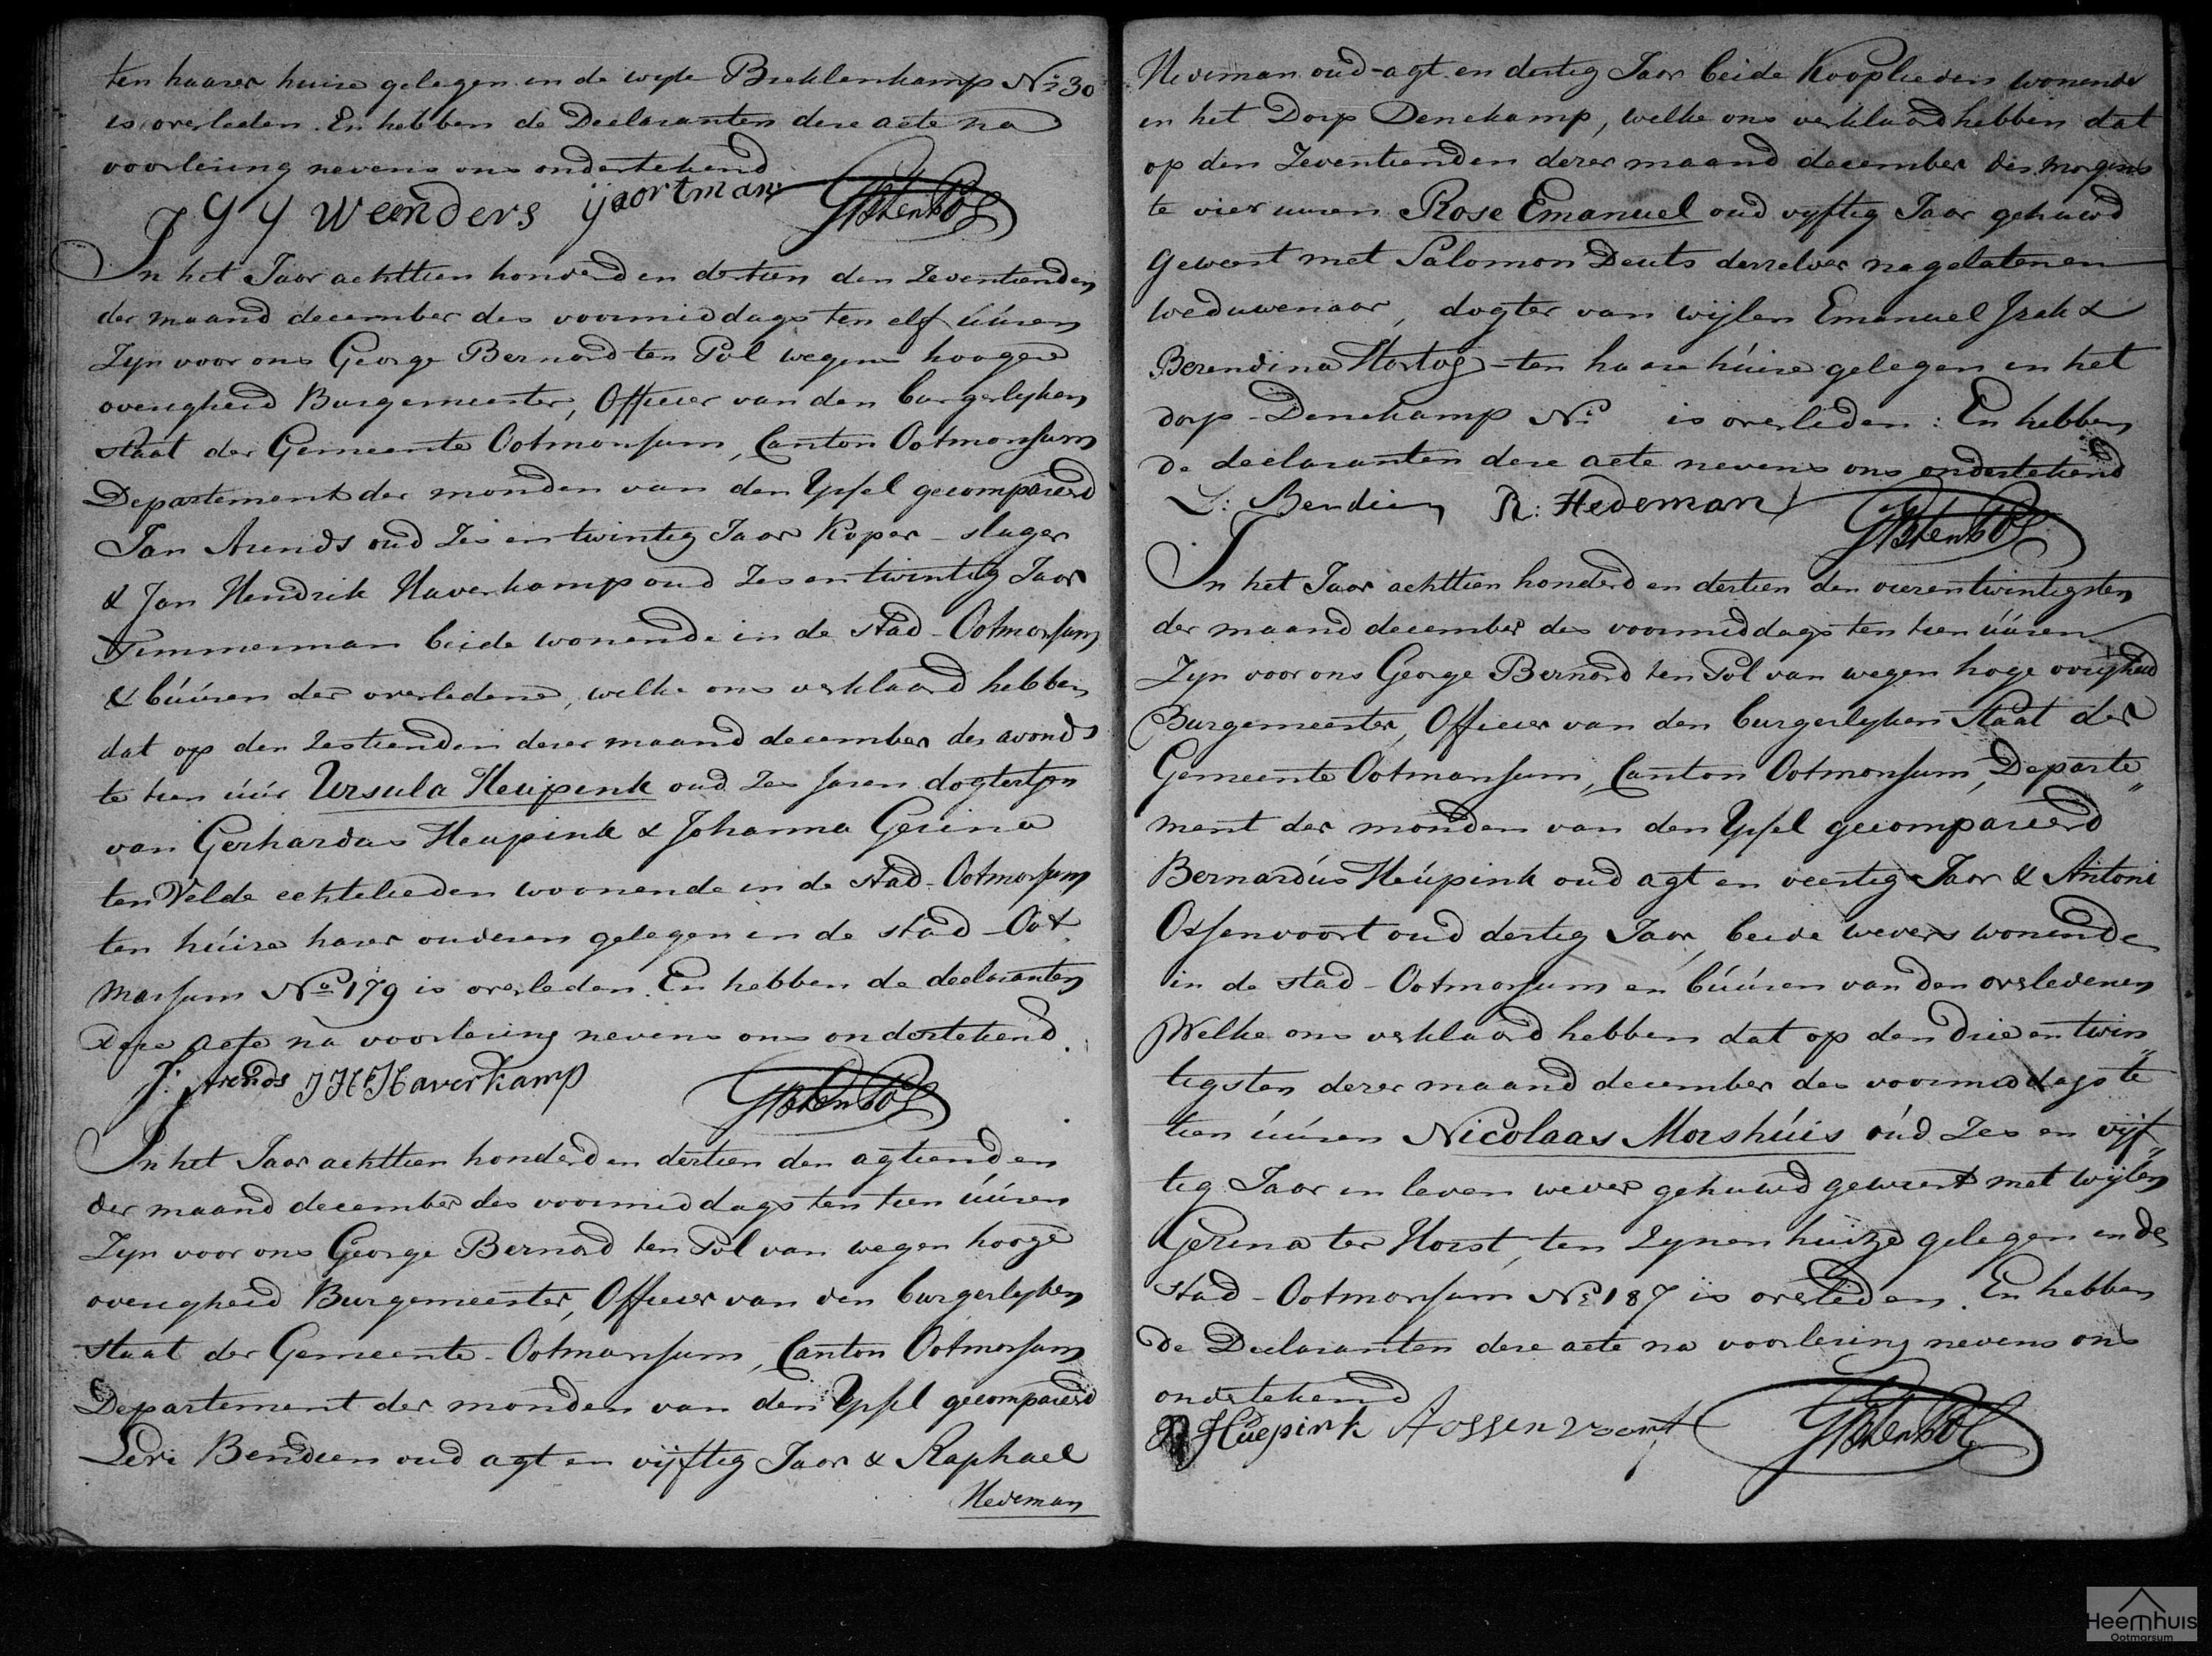 ten haarer huise gelegen in de wyk Breklenkamp No 30
is overleeden. En hebben de Declaranten dese acte na
voorlesing nevens ons ondertekend
J G Y Weenders ijaortman GBtenPol
In het Jaar achttien honderd en dertien den Zeventienden
der maand december des voormiddags ten elf úúren
Zyn voor ons George Bernard ten Pol wegens hoogere
overigheid Burgemeester, Officier van den burgerlyken
staat der Gemeente Ootmarsum, Canton Ootmarsum
Departement der monden van den Yssel gecompareerd
Jan Arends oud Zes en twintig Jaar Koper-slager
& Jan Hendrik Haverkamp oud Zes en twintig Jaar
Timmerman beide wonende in de stad-Ootmarsum
& búúren der overledene, welke ons verklaard hebben
dat op den Zestienden deser maand december des avonds
te tien úúr Ursula Heupink oud Zes Jaren dogtertjen
van Gerhardus Heupink & Johanna Gesina
ten Velde echtelieden woonende in de stad-Ootmarsum
ten húise harer ouderen gelegen in de stad-Oot
marsum No 179 is overleden. En hebben de declaranten
dese acte na voorlesing nevens ons ondertekend.
J: Arends J H Haverkamp GBtenPol
In het Jaar achttien honderd en dertien den agtienden
der maand december des voormiddags ten tien úúren
Zyn voor ons George Bernard ten Pol van wegen hooge
overigheid Burgemeester, Officier van den burgerlyken
staat der Gemeente-Ootmarsum, Canton Ootmarsum
Departement der monden van den Yssel gecompareerd
Levi Bendien oud agt en vijftig Jaar & Raphael
Hedeman
Hedeman oud-agt en dertig Jaar beide Kooplieden wonende
in het Dorp Denekamp, welke ons verklaard hebben dat
op den Zeventienden deser maand december des morgens
te vier uuren Rose Emanuel oud vyftig Jaar gehuwd
Geweest met Salomon Deuts desselver nagelatenen
weduwenaar, dogter van wijlen Emanuel Isak &
Berendina Hartog-ten haare húise gelegen in het
dorp-Denekamp No is overleden: En hebben
de declaranten dese acte nevens ons ondertekend
L: Bendien R: Hedeman GBtenPol
In het Jaar achttien honderd en dertien den vierentwintigsten
der maand december des voormiddags ten tien úúren
Zyn voor ons George Bernard ten Pol van wegen hoge overigheid
Burgemeester, Officier van den burgerlyken Staat der
Gemeente Ootmarsum, Canton Ootmarsum, Departe„
ment der monden van den Yssel gecompareerd
Bernardús Heúpink oud agt en veertig Jaar & Antoni
Ossenvoort oud dertig Jaar, beide wevers wonende
in de stad-Ootmarsum en búúren van den overledenen
Welke ons verklaard hebben dat op den drie en twin„
tigsten deser maand december des voormiddags te
tien úúren Nicolaas Morshúis oúd Zes en vijf„
tig Jaar in leven wever gehuwd geweest met wijlen
Gesina ter Horst, ten Zynen huize gelegen in de
stad-Ootmarsum No 187 is overleden. En hebben
de Declaranten dese acte na voorlesing nevens ons
ondertekend
B Húepink A ossenvoort GBtenPol
Heemhuis
Ootmarsum